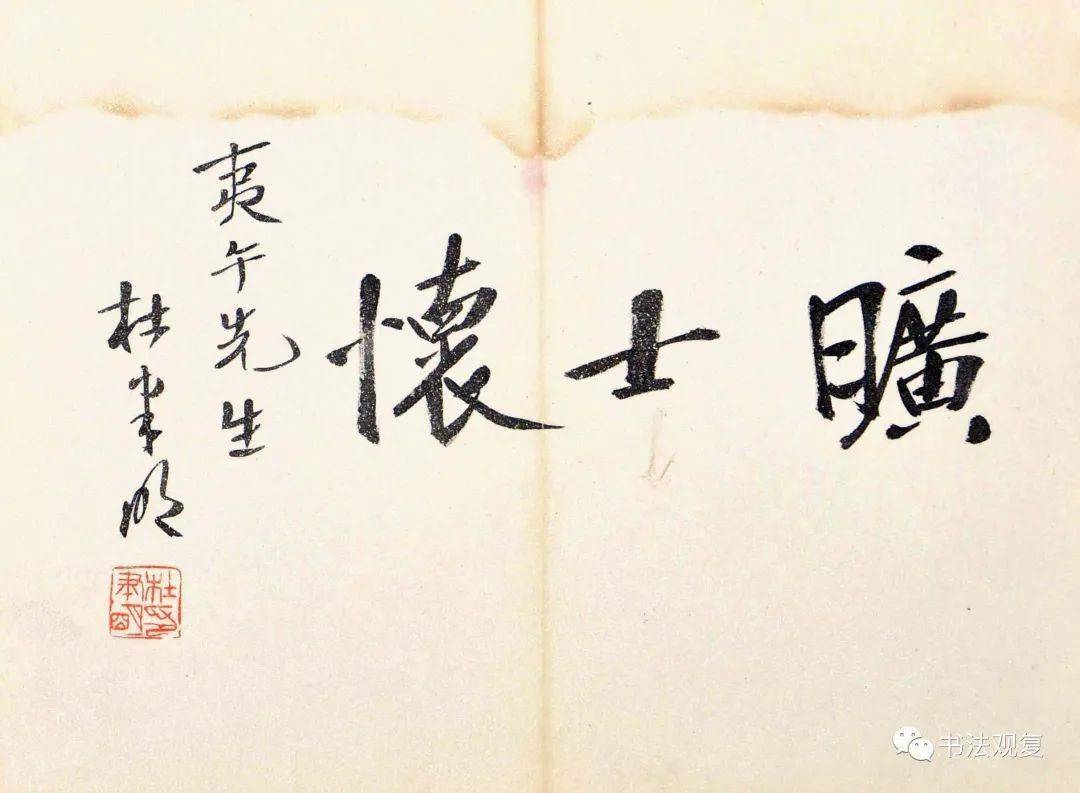 曠士懷
夷午先生
杜聿明
杜聿明印
书法观复